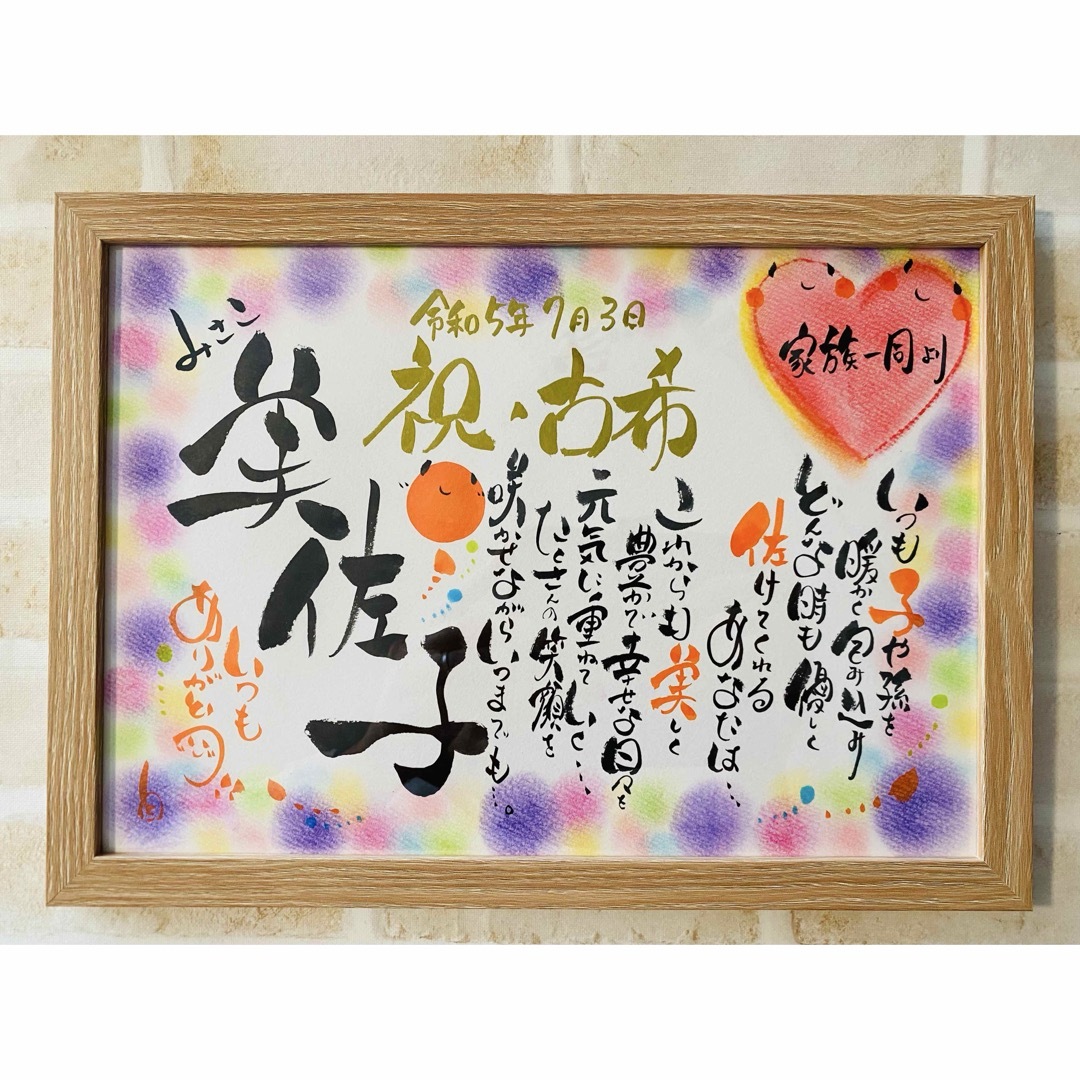 令和5年7月3日
祝・古希
家族一同より
いつも子や孫を
暖かく包み込み
どんな時も優しく
佐けてくれる
あなたは…
これからも美しく
豊かで幸せな日々を
元気に重ねていく…
たくさんの笑顔を
咲かせながらいつまでも…。
みさこ
美佐子
いつも
ありがとう!!